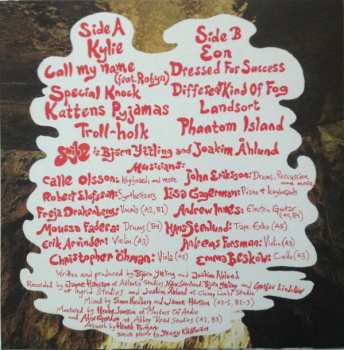 Side A
Kylie
Call my name
(feat. Robyn)
Special Knock
Kattens Pyjamas
Troll-holk
Side B
Eon
Dressed For Success
Different Kind Of Fog
Landsort
Phantom Island
Smile is Björn Yttling and Joakim Åhlund
Musicians:
Calle Olsson: Keyboards and more
John Eriksson: Drums, Percussion and more
Robert Elofsson: Synthesizers
Lisa Gagerman: Flute + Keyboards
Freja Drakenberg: Vocals (A2, B1)
Andrew Innes: Electric Guitar
Moussa Fadera: Drums (B4)
Hans Stenlund: Tape Echo
Erik Arvinder: Violin (A3)
Andreas Forsman: Violin (A3)
Christopher Öhman: Viola (A3)
Emma Beskow: Cello (A3)
Written and produced by Björn Yttling and Joakim Åhlund
Recorded by
at Ingrid Studios and Joakim Åhlund at
Mixed by
Mastered by Henke Jonsson at Masters Of Audio
and at Abbey Road Studios (A2, B3)
Artwork by
photo by